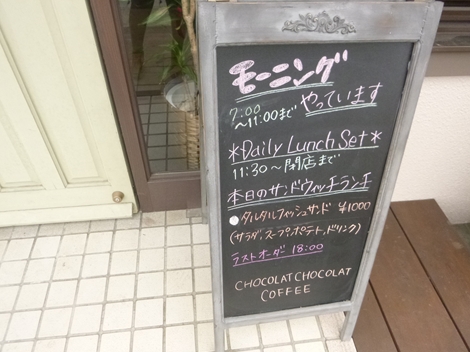 モーニング
7:00
〜11:00まで やっています
*Daily Lunch Set*
11:30〜閉店まで
本日のサンドウィッチランチ
●タルタルフィッシュサンド ¥1000
(サラダ,スープ,ポテト,ドリンク)
ラストオーダー 18:00
CHOCOLATCHOCOLAT
COFFEE